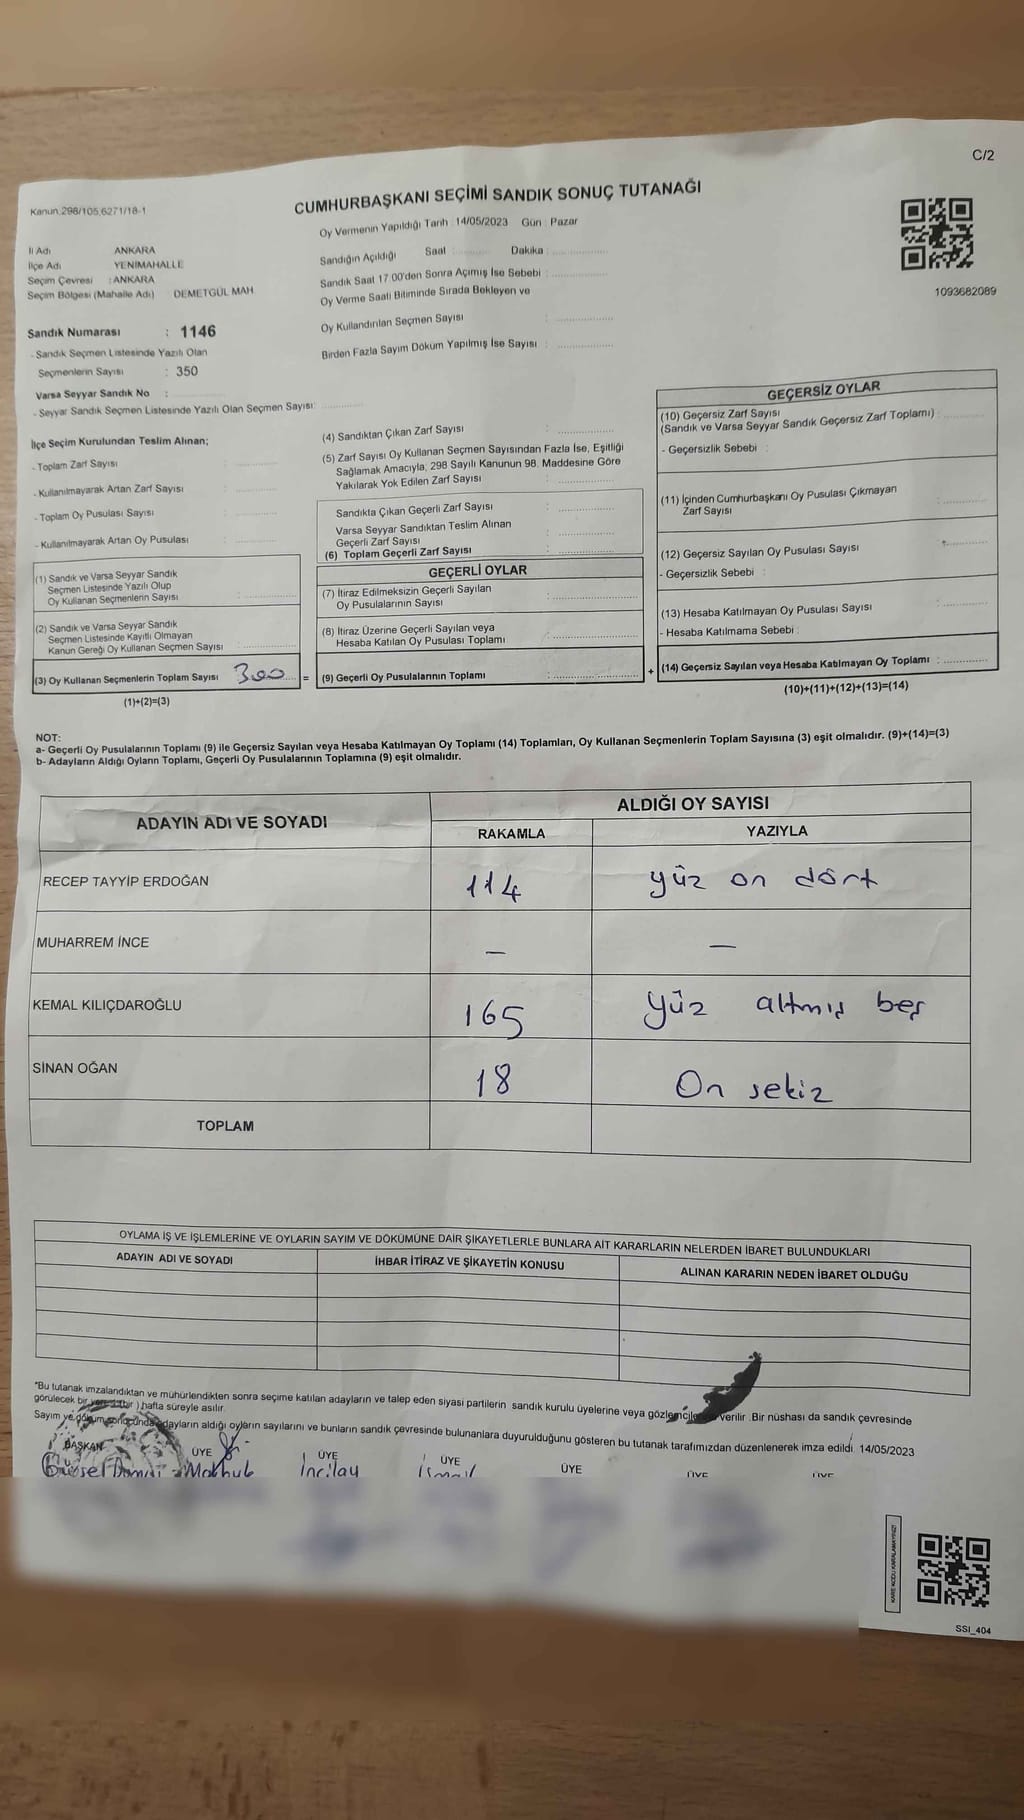 C/2
Kanun.298/105,6271/18-1
CUMHURBAŞKANI SEÇİMİ SANDIK SONUÇ TUTANAĞI
Oy Vermenin Yapıldığı Tarih : 14/05/2023 Gün : Pazar
İl Adı ANKARA
İlçe Adı YENİMAHALLE
Seçim Çevresi : ANKARA
Seçim Bölgesi (Mahalle Adı) DEMETGÜL MAH.
Sandığın Açıldığı Saat : Dakika :
Sandık Saat 17:00'den Sonra Açımış İse Sebebi :
Oy Verme Saati Bitiminde Sırada Bekleyen ve
Oy Kullandırılan Seçmen Sayısı :
Birden Fazla Sayım Döküm Yapılmış İse Sayısı :
1093682089
Sandık Numarası : 1146
- Sandık Seçmen Listesinde Yazılı Olan
Seçmenlerin Sayısı : 350
Varsa Seyyar Sandık No :
- Seyyar Sandık Seçmen Listesinde Yazılı Olan Seçmen Sayısı:
İlçe Seçim Kurulundan Teslim Alınan;
- Toplam Zarf Sayısı :
- Kullanılmayarak Artan Zarf Sayısı :
- Toplam Oy Pusulası Sayısı :
- Kullanılmayarak Artan Oy Pusulası :
(1) Sandık ve Varsa Seyyar Sandık
Seçmen Listesinde Yazılı Olup
Oy Kullanan Seçmenlerin Sayısı :
(2) Sandık ve Varsa Seyyar Sandık
Seçmen Listesinde Kayıtlı Olmayan
Kanun Gereği Oy Kullanan Seçmen Sayısı :
(3) Oy Kullanan Seçmenlerin Toplam Sayısı 300 =
(1)+(2)=(3)
(4) Sandıktan Çıkan Zarf Sayısı :
(5) Zarf Sayısı Oy Kullanan Seçmen Sayısından Fazla İse, Eşitliği
Sağlamak Amacıyla, 298 Sayılı Kanunun 98. Maddesine Göre
Yakılarak Yok Edilen Zarf Sayısı :
Sandıkta Çıkan Geçerli Zarf Sayısı :
Varsa Seyyar Sandıktan Teslim Alınan
Geçerli Zarf Sayısı :
(6) Toplam Geçerli Zarf Sayısı :
GEÇERLİ OYLAR
(7) İtiraz Edilmeksizin Geçerli Sayılan
Oy Pusulalarının Sayısı :
(8) İtiraz Üzerine Geçerli Sayılan veya
Hesaba Katılan Oy Pusulası Toplamı :
(9) Geçerli Oy Pusulalarının Toplamı : +
GEÇERSİZ OYLAR
(10) Geçersiz Zarf Sayısı
(Sandık ve Varsa Seyyar Sandık Geçersiz Zarf Toplamı) :
- Geçersizlik Sebebi :
(11) İçinden Cumhurbaşkanı Oy Pusulası Çıkmayan
Zarf Sayısı :
(12) Geçersiz Sayılan Oy Pusulası Sayısı :
- Geçersizlik Sebebi :
(13) Hesaba Katılmayan Oy Pusulası Sayısı :
- Hesaba Katılmama Sebebi :
(14) Geçersiz Sayılan veya Hesaba Katılmayan Oy Toplamı :
(10)+(11)+(12)+(13)=(14)
NOT:
a- Geçerli Oy Pusulalarının Toplamı (9) ile Geçersiz Sayılan veya Hesaba Katılmayan Oy Toplamı (14) Toplamları, Oy Kullanan Seçmenlerin Toplam Sayısına (3) eşit olmalıdır. (9)+(14)=(3)
b- Adayların Aldığı Oyların Toplamı, Geçerli Oy Pusulalarının Toplamına (9) eşit olmalıdır.
ADAYIN ADI VE SOYADI ALDIĞI OY SAYISI
RAKAMLA YAZIYLA
RECEP TAYYİP ERDOĞAN 114 yüz on dört
MUHARREM İNCE — —
KEMAL KILIÇDAROĞLU 165 yüz altmış beş
SİNAN OĞAN 18 On sekiz
TOPLAM
OYLAMA İŞ VE İŞLEMLERİNE VE OYLARIN SAYIM VE DÖKÜMÜNE DAİR ŞİKAYETLERLE BUNLARA AİT KARARLARIN NELERDEN İBARET BULUNDUKLARI
ADAYIN ADI VE SOYADI İHBAR İTİRAZ VE ŞİKAYETİN KONUSU ALINAN KARARIN NEDEN İBARET OLDUĞU
*Bu tutanak imzalandıktan ve mühürlendikten sonra seçime katılan adayların ve talep eden siyasi partilerin sandık kurulu üyelerine veya gözlemcilerine verilir. Bir nüshası da sandık çevresinde
görülecek bir yere ) hafta süreyle asılır.
Sayım ve döküm sonucunda adayların aldığı oyların sayılarını ve bunların sandık çevresinde bulunanlara duyurulduğunu gösteren bu tutanak tarafımızdan düzenlenerek imza edildi. 14/05/2023
BAŞKAN ÜYE ÜYE ÜYE ÜYE ÜYE ÜYE
Gürsel Makbule İncilay İsmail
KARE KODU KARALAMAYINIZ!
SSI_404